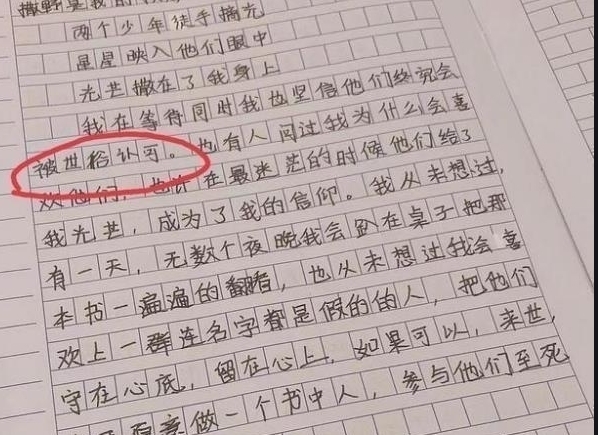 撒野是我的
两个少年徒手摘光
星星映入他们眼中
光芒撒在了我身上
我在等待同时我也坚信他们终究会
被世俗认可。也有人问过我为什么会喜
欢他们,也许在最迷茫的时候他们给了
我光芒,成为了我的信仰。我从未想过,
有一天,无数个夜晚我会趴在桌子把那
本书一遍遍的翻看,也从未想过我会喜
欢上一群连名字都是假的的人,把他们
守在心底,留在心上,如果可以,来世,
意做一个书中人,参与他们至死